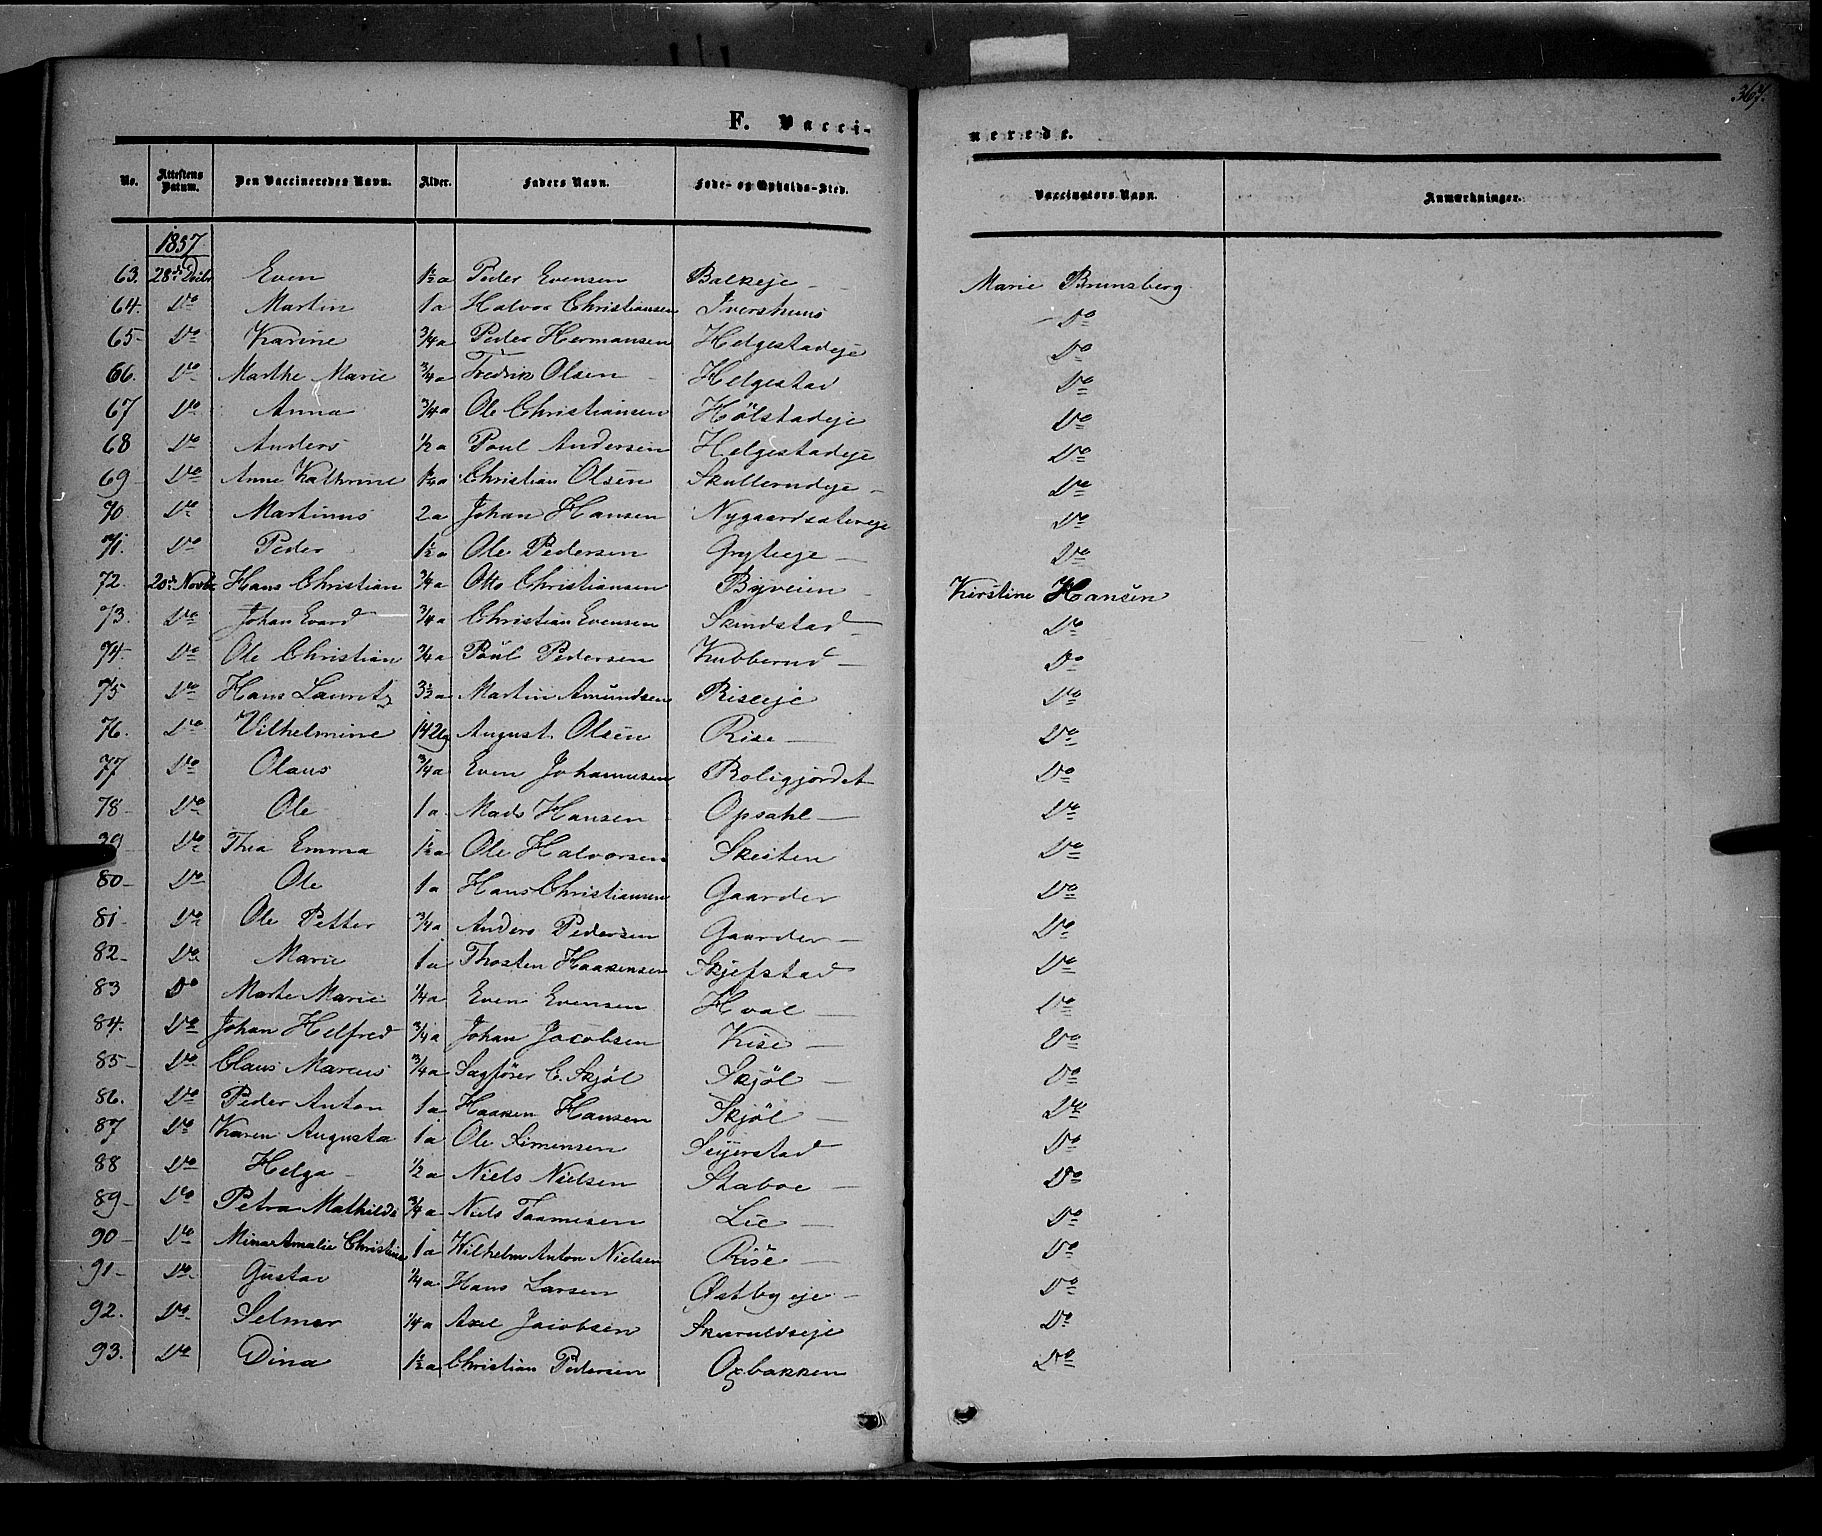 367.
F. Vacci-
nerede.
No. Attestens Datum. Den Vaccineredes Navn. Alder. Faders Navn. Føde- og Opholds-Sted. Vaccinators Navn. Anmærkninger.
1857
63. 28de Decbr Even 1½a Peder Evensen Balkeje - Marie Brunsberg
64. Do Martin 1a Halvor Christiansen Ivershuus Do
65- Do Karine ¾a Peder Hermansen Helgestadeje Do
66. Do Marthe Marie ¾a Fredrik Olsen - Helgestad Do
67 Do Anna ¾a Ole Christiansen Hölstadeje Do
68 Do Anders ½a Poul Andersen Helgestadeje Do
69- Do Anne Kathrine ½a Christian Olsen Skullerudeje - Do
70. Do Martinus 2a Johan Hansen Nygaardsætereje Do
71. Do Peder 1½a Ole Pedersen Gryteeje - Do
72. 20de Novbr Hans Christian ¾a Otto Christiansen Byveien - Kirstine Hansen
73. Do Johan Evard ¾a Christian Evensen Skindstad - Do
74. Do Ole Christian ¾a Poul Pedersen Kubberud - Do
75 Do Hans Lauritz 3½a Martin Amundsen Riseeje Do
76. Do Vilhelmine 14 Ug August Olsen Rise - Do
77 Do Olaus ¾a Even Johannesen Boligjordet Do
78- Do Ole 1a Mads Hansen Opsahl - Do
79 Do Thea Emma 1½a Ole Halvorsen Skesten Do
80- Do Ole 1a Hans Christiansen Gaarder Do
81- Do Ole Petter ¾a Anders Pedersen Gaarder - Do
82- Do Marie 1a Thosten Haakensen Skjefstad Do
83 Do Marte Marie ¼a Even Evensen Hval - Do
84. Do Johan Helfred ¾a Johan Jacobsen Kise - Do
85- Do Claus Marcus ¾a Sagfører C. Skjöl Skjöl - Do
86. Do Peder Anton 1a Haaken Hansen Skjöl - Do
87 Do Karen Augusta 1a Ole Simensen Seijerstad Do
88 Do Helga - ½a Niels Nielsen Staboe - Do
89- Do Petra Mathilde ¾a Niels Taamesen Lie - Do
90- Do Mina Amalie Christine 1a Vilhelm Anton Nielsen Rise - Do
91- Do Gustav ¼a Hans Larsen Østbyeje - Do
92. Do Selmer ¼a Axel Jacobsen Skuruldseje Do
93. Do Dina 1½a Christian Pedersen Oxbakken Do